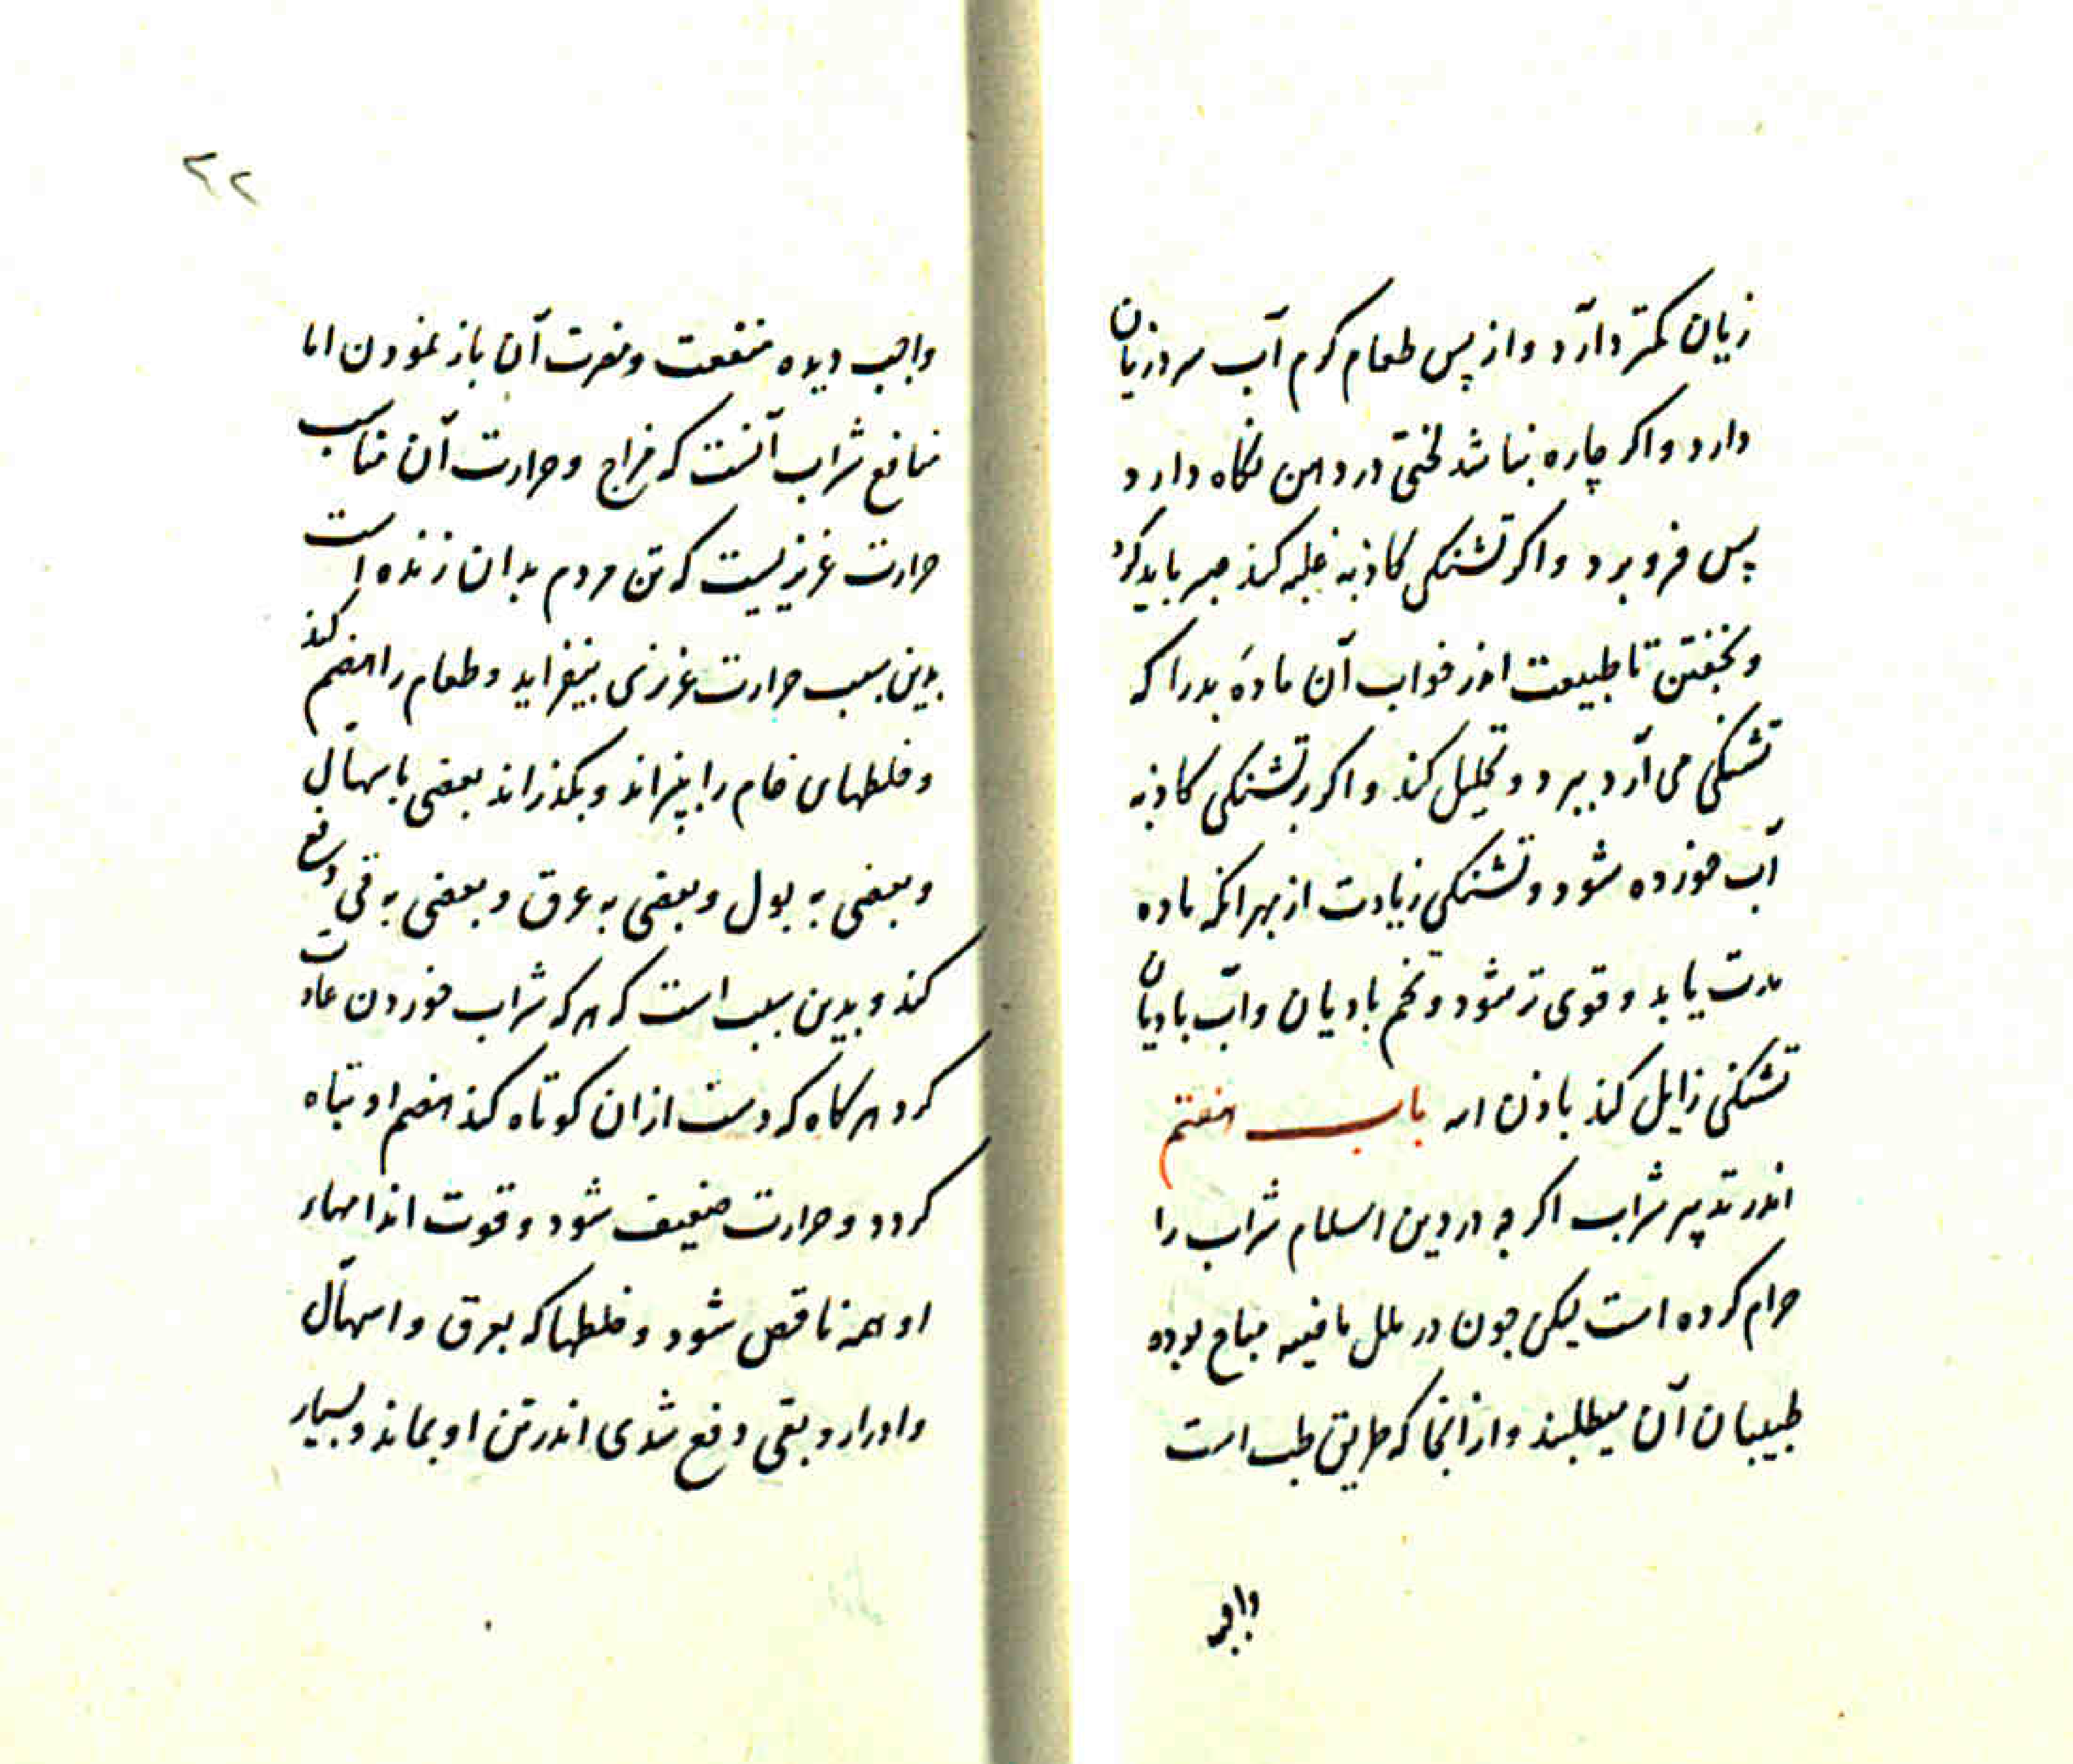 زیان کمتر دارد و از پس طعام گرم آب سرد زیان
دارد و اگر چاره نباشد لختی در دهن نگاه دارد
پس فرو برد و اگر تشنگی کاذبه غلبه کند صبر باید کرد
و بخفتن تا طبیعت اندر خواب آن مادهٔ بد را که
تشنگی می آرد ببرد و تحلیل کند و اگر بر تشنگی کاذبه
آب خورده شود و تشنگی زیادت از بهر انکه ماده
مدت یابد و قوی تر شود و تخم بادیان و آب بادیان
تشنگی زایل کند باذن الله باب هفتم
اندر تدبیر شراب اگر چه در دین اسلام شراب را
حرام کرده است لیکن چون در ملل ماضیه مباح بوده
طبیبان آن میطلبند و از انجا که طریق طب است
واجب
۲۲
واجب دیده منفعت و مضرت آن باز نمودن اما
منافع شراب آنست که مزاج و حرارت آن مناسب
حرارت غریزیست که تن مردم بدان زنده است
بدین سبب حرارت غریزی بیفزاید و طعام را هضم کند
و خلطهای خام را بپزاند و بگذراند بعضی باسهال
و بعضی به بول و بعضی به عرق و بعضی به قی دفع
کند و بدین سبب است که هر که شراب خوردن عادت
کرد هرگاه که دست ازان کوتاه کند هضم او تباه
گردد و حرارت ضعیف شود و قوت اندامهاء
او همه ناقص شود و خلطها که بعرق و اسهال
و ادرار و بقی دفع شدی اندر تن او بماند و بسیار